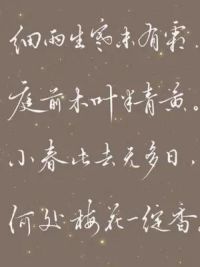 细雨生寒未有霜，
庭前木叶半青黄。
小春此去无多日，
何处梅花一绽香。